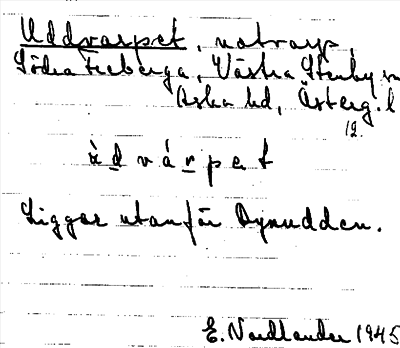 Uddvarpet, notvarp,
Södra Freberga, Västra Stenby sn
Aska hd, Österg. l
12.
ùd várpet
Ligger utanför Dynudden.
E. Nordlander 1945